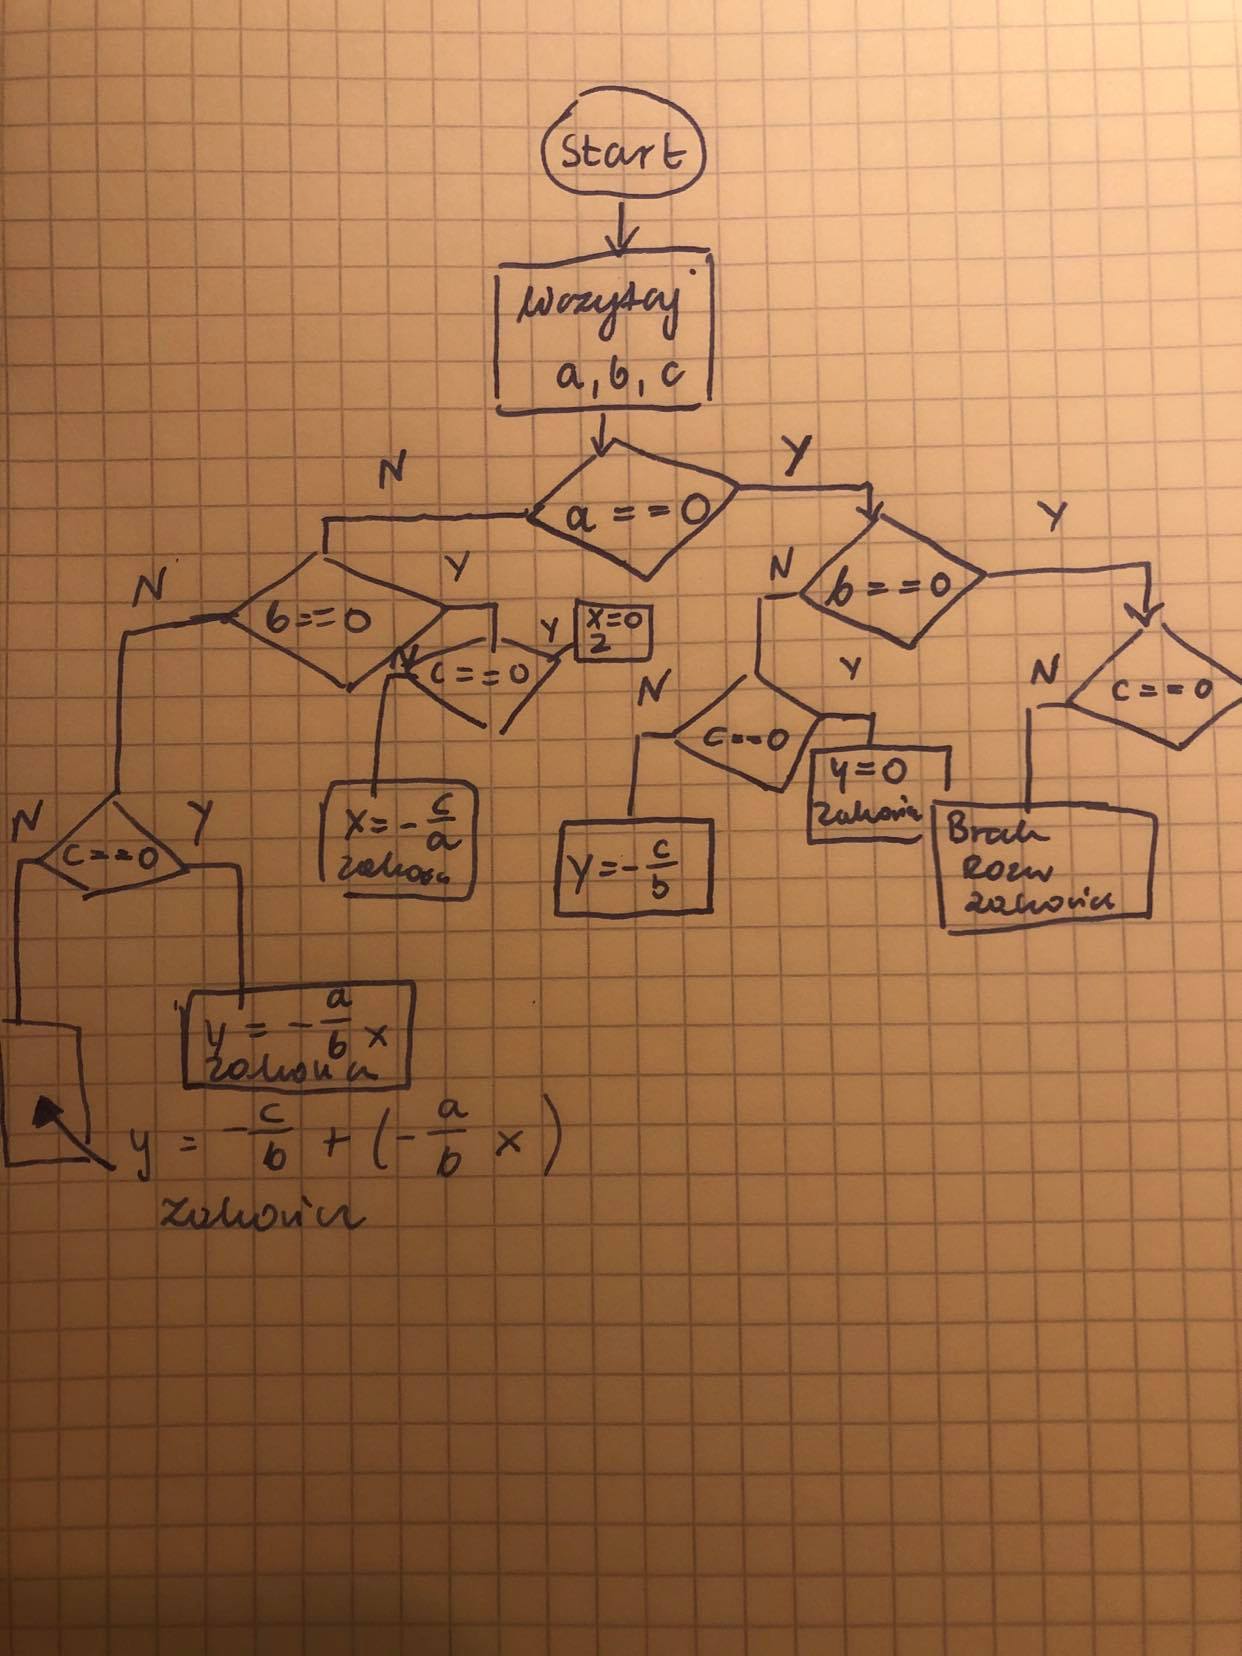 Start
Wczytaj
a, b, c
N
a == 0
Y
N
b == 0
Y
N
b == 0
Y
c == 0
Y
x=0
Z
N
c == 0
Y
N
c == 0
N
c == 0
Y
x = - c/a
zakończ
y = - c/b
y = 0
zakończ
Brak
Rozw
zakończ
y = - a/b x
zakończ
y = - c/b + (- a/b x)
zakończ